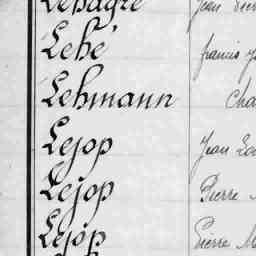 Lehagre Jean Pierre
Lehé francis
Lehmann Cha
Lejop Jean Lou
Lejop Pierre
Lejop Pierre M